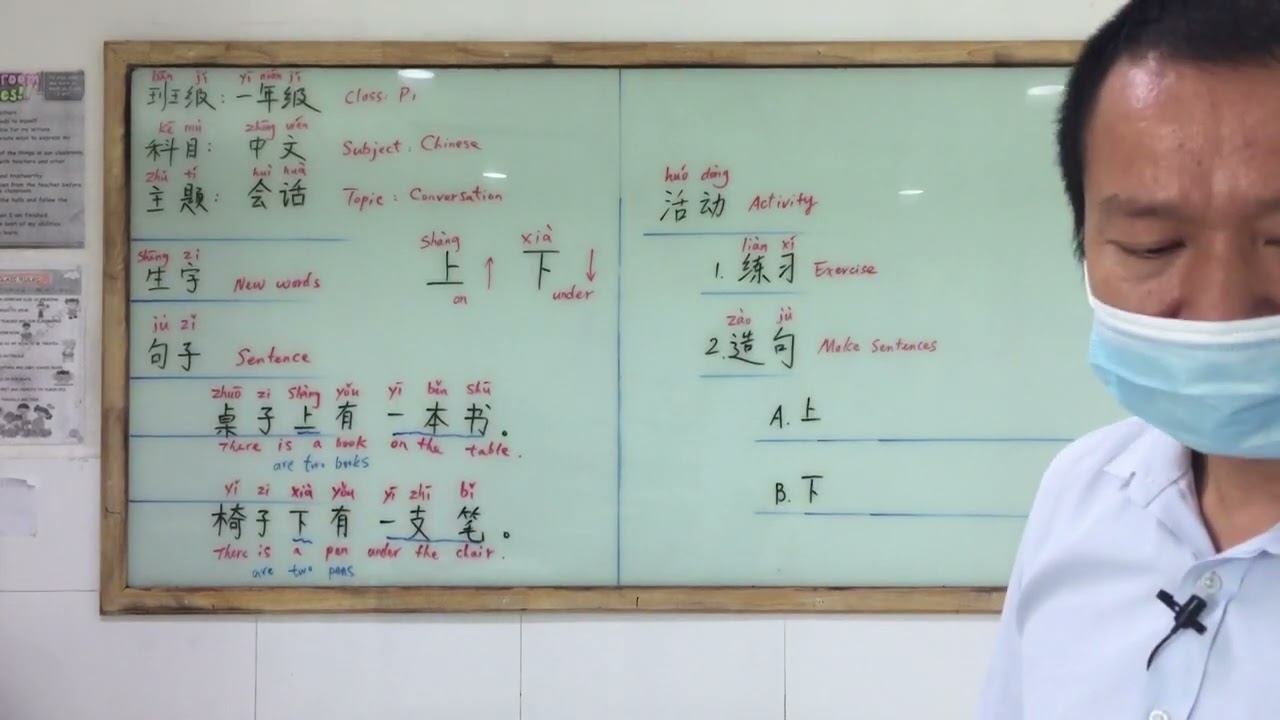 bān jí yī nián jí
班级：一年级 Class: P1
kē mù zhōng wén
科目：中文 Subject: Chinese
zhǔ tí huì huà
主题：会话 Topic: Conversation
shēng zì
生字 New words
shàng xià
上 ↑ 下 ↓
on under
jù zi
句子 Sentence
zhuō zi shàng yǒu yī běn shū
桌子上有一本书。
There is a book on the table.
are two books
yǐ zi xià yǒu yī zhī bǐ
椅子下有一支笔。
There is a pen under the chair.
are two pens
huó dòng
活动 Activity
liàn xí
1. 练习 Exercise
zào jù
2. 造句 Make Sentences
A. 上
B. 下